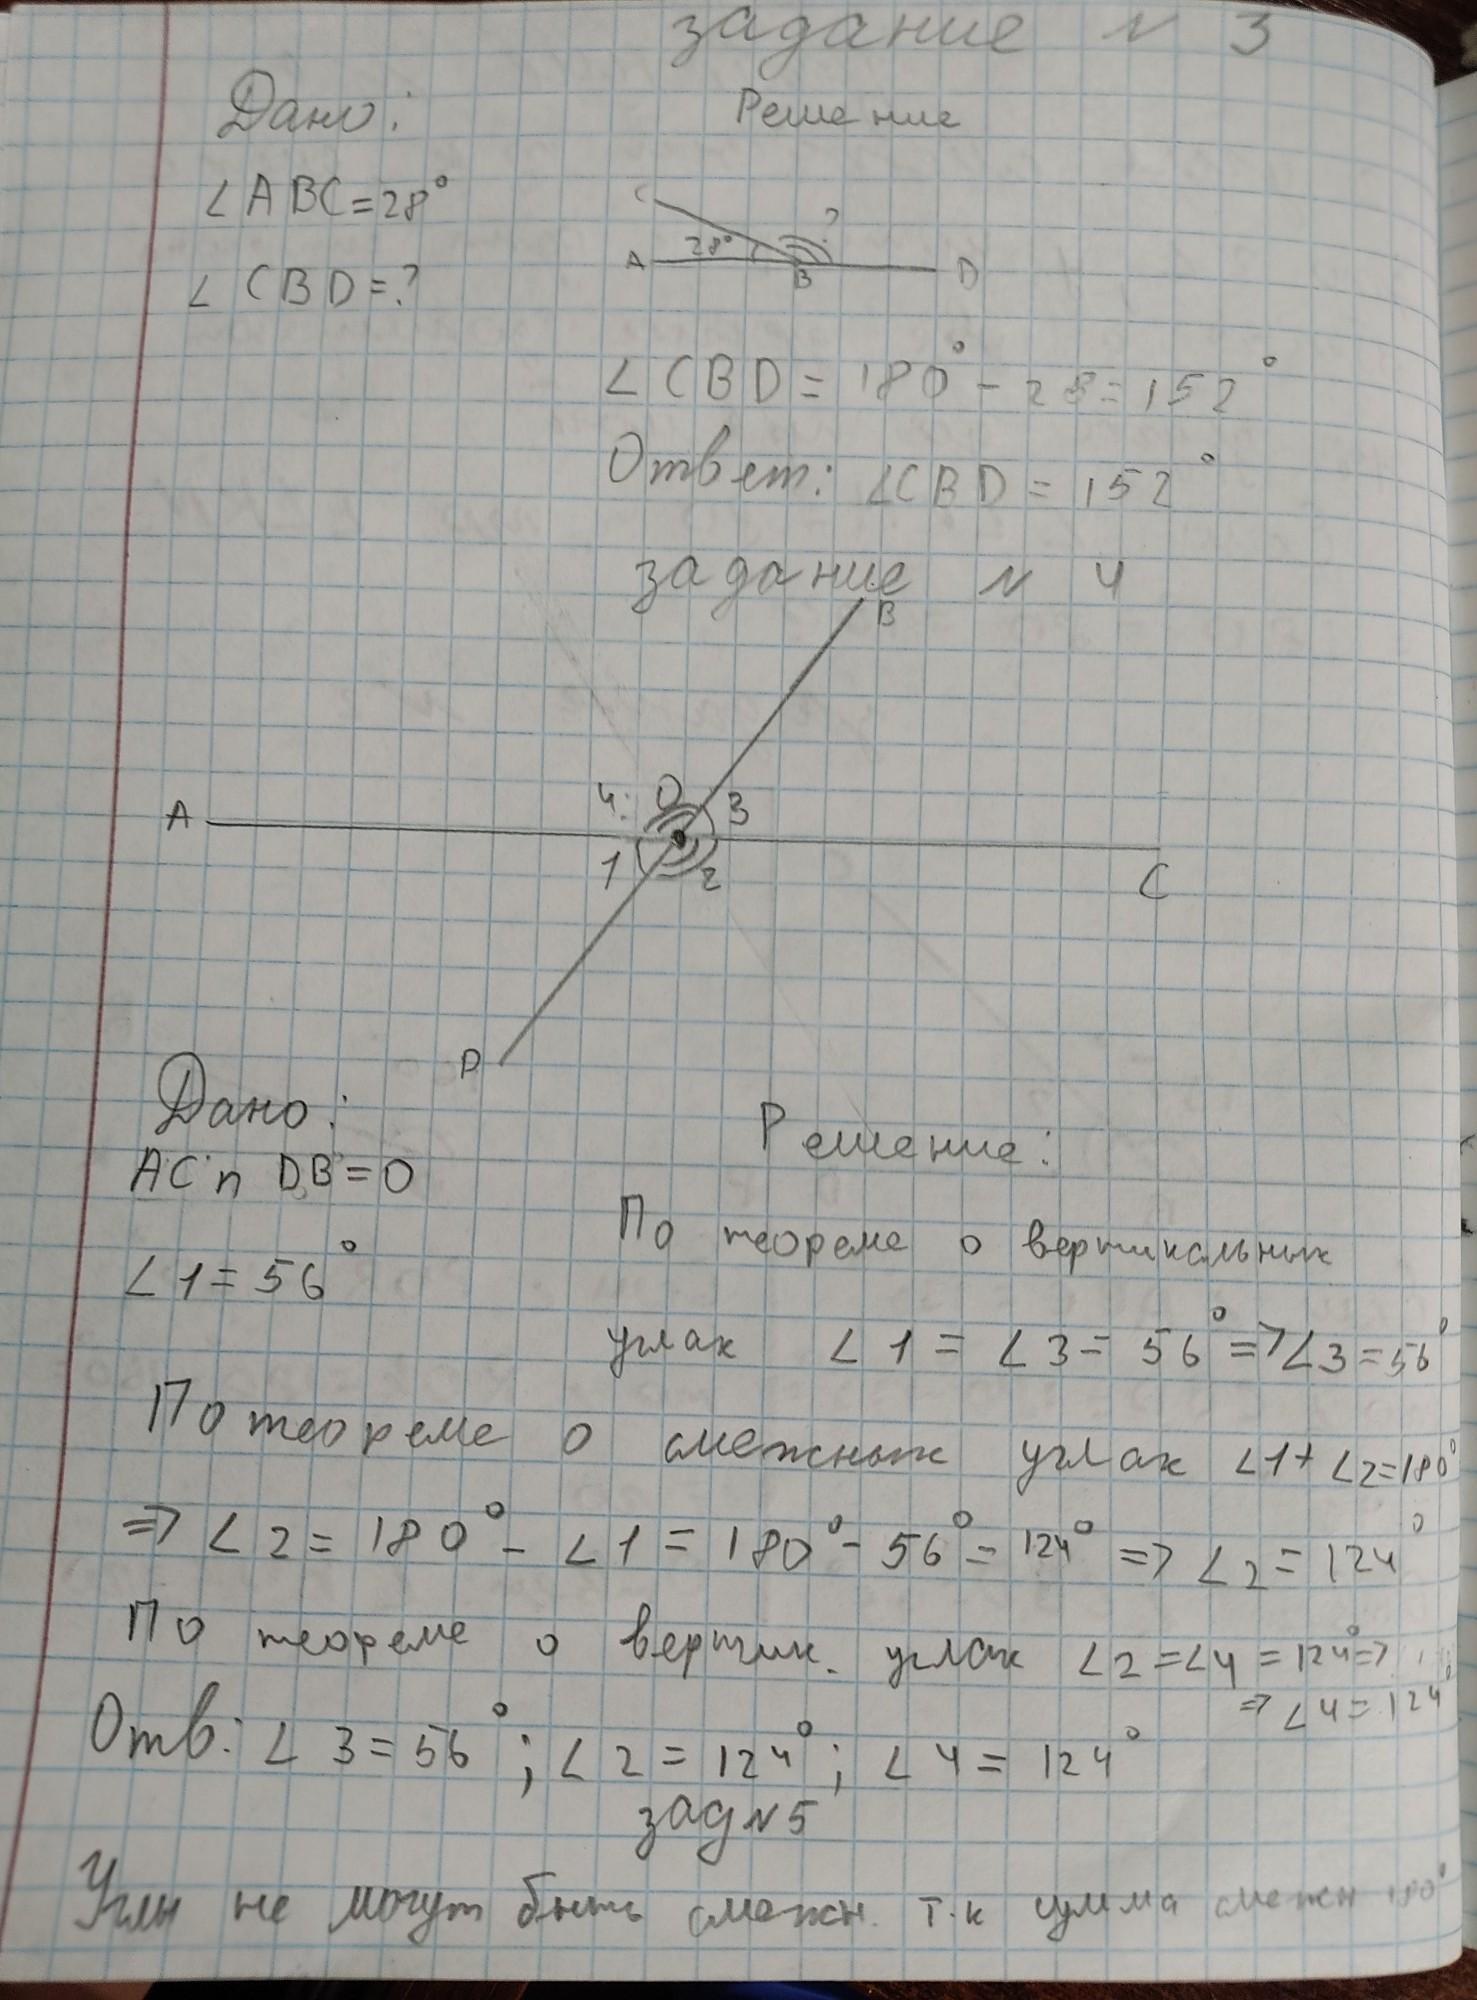 задание N 3
Дано:
Решение
∠ABC=28°
∠CBD=?
C
?
28°
A
B
D
∠CBD = 180° - 28 = 152°
Ответ: ∠CBD = 152°
задание N 4
B
A
4
O
3
1
2
C
D
Дано:
Решение:
AC ∩ DB = O
∠1 = 56°
По теореме о вертикальных
углах ∠1 = ∠3 = 56° => ∠3 = 56°
По теореме о смежных углах ∠1 + ∠2 = 180°
=> ∠2 = 180° - ∠1 = 180° - 56° = 124° => ∠2 = 124°
По теореме о вертик. углах ∠2 = ∠4 = 124° =>
=> ∠4 = 124°
Отв: ∠3 = 56°; ∠2 = 124°; ∠4 = 124°
зад N 5
Углы не могут быть смежн. т.к сумма смежн 180°